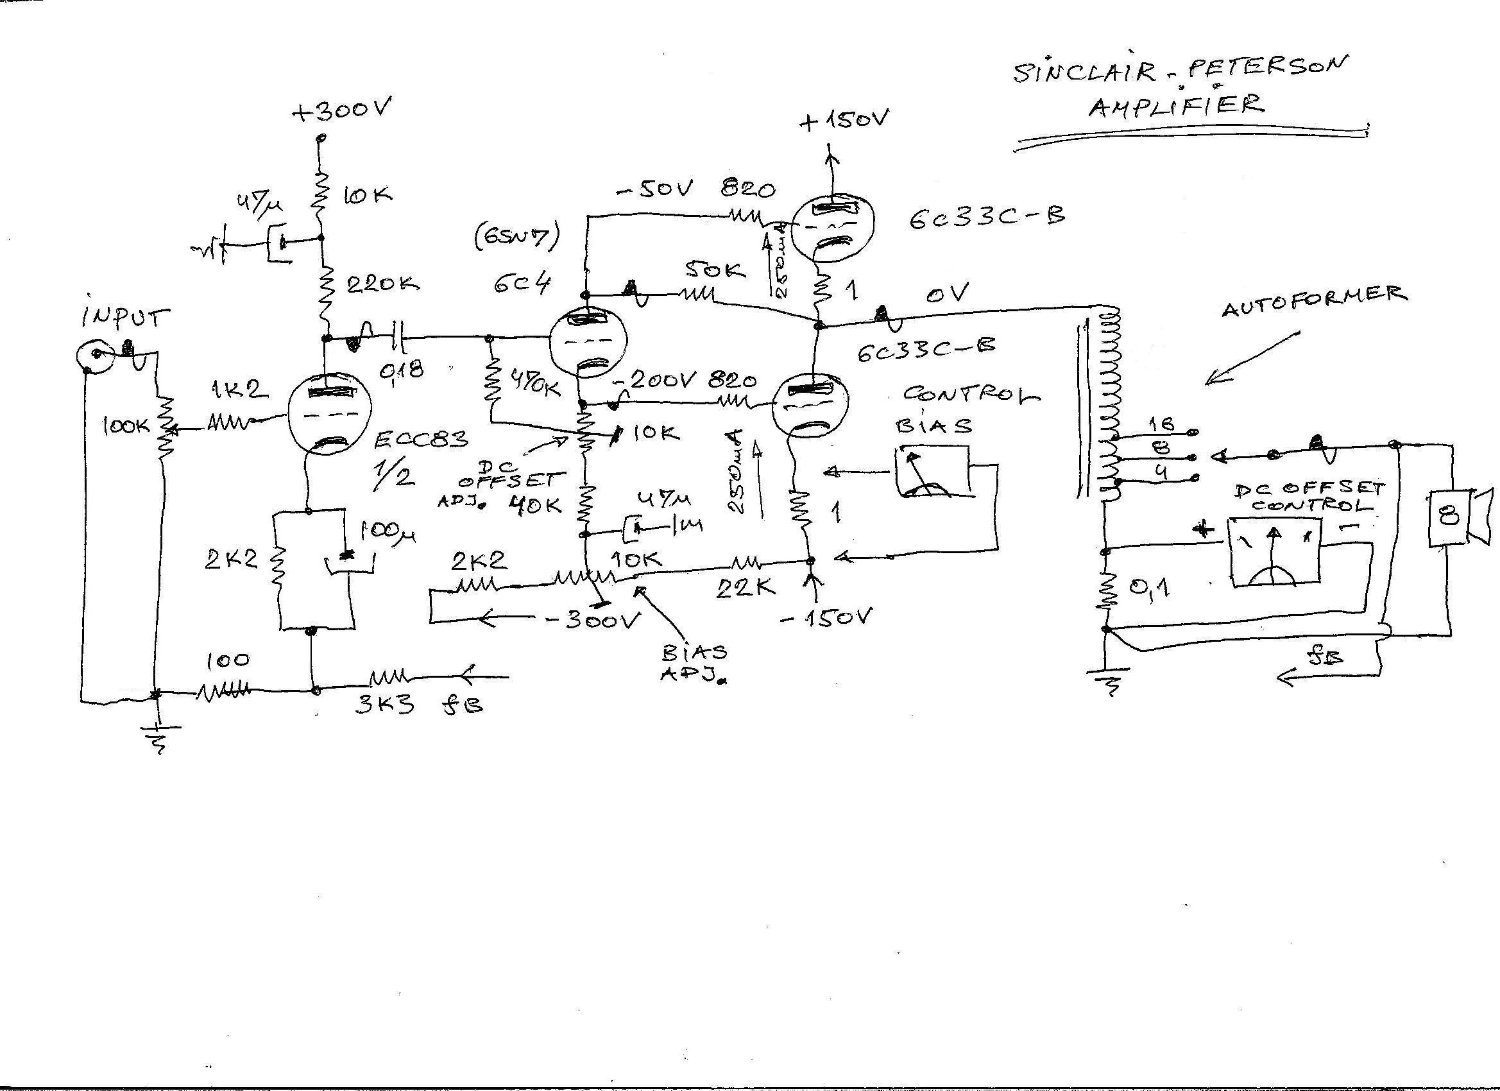 SINCLAIR - PETERSON
AMPLIFIER
+300V
+150V
47μ
10K
-50V 820
6C33C-B
(6SN7)
250mA
220K
6C4
50K
1
0V
AUTOFORMER
INPUT
6C33C-B
0,18
470K
-200V 820
CONTROL
BIAS
1K2
100K
10K
16
ECC83
1/2
8
DC
OFFSET
ADJ.
250mA
4
DC OFFSET
CONTROL
40K
47μ
1
+
-
8
100μ
2K2
2K2
10K
22K
0,1
-300V
-150V
BIAS
ADJ.
fB
100
3K3
fB